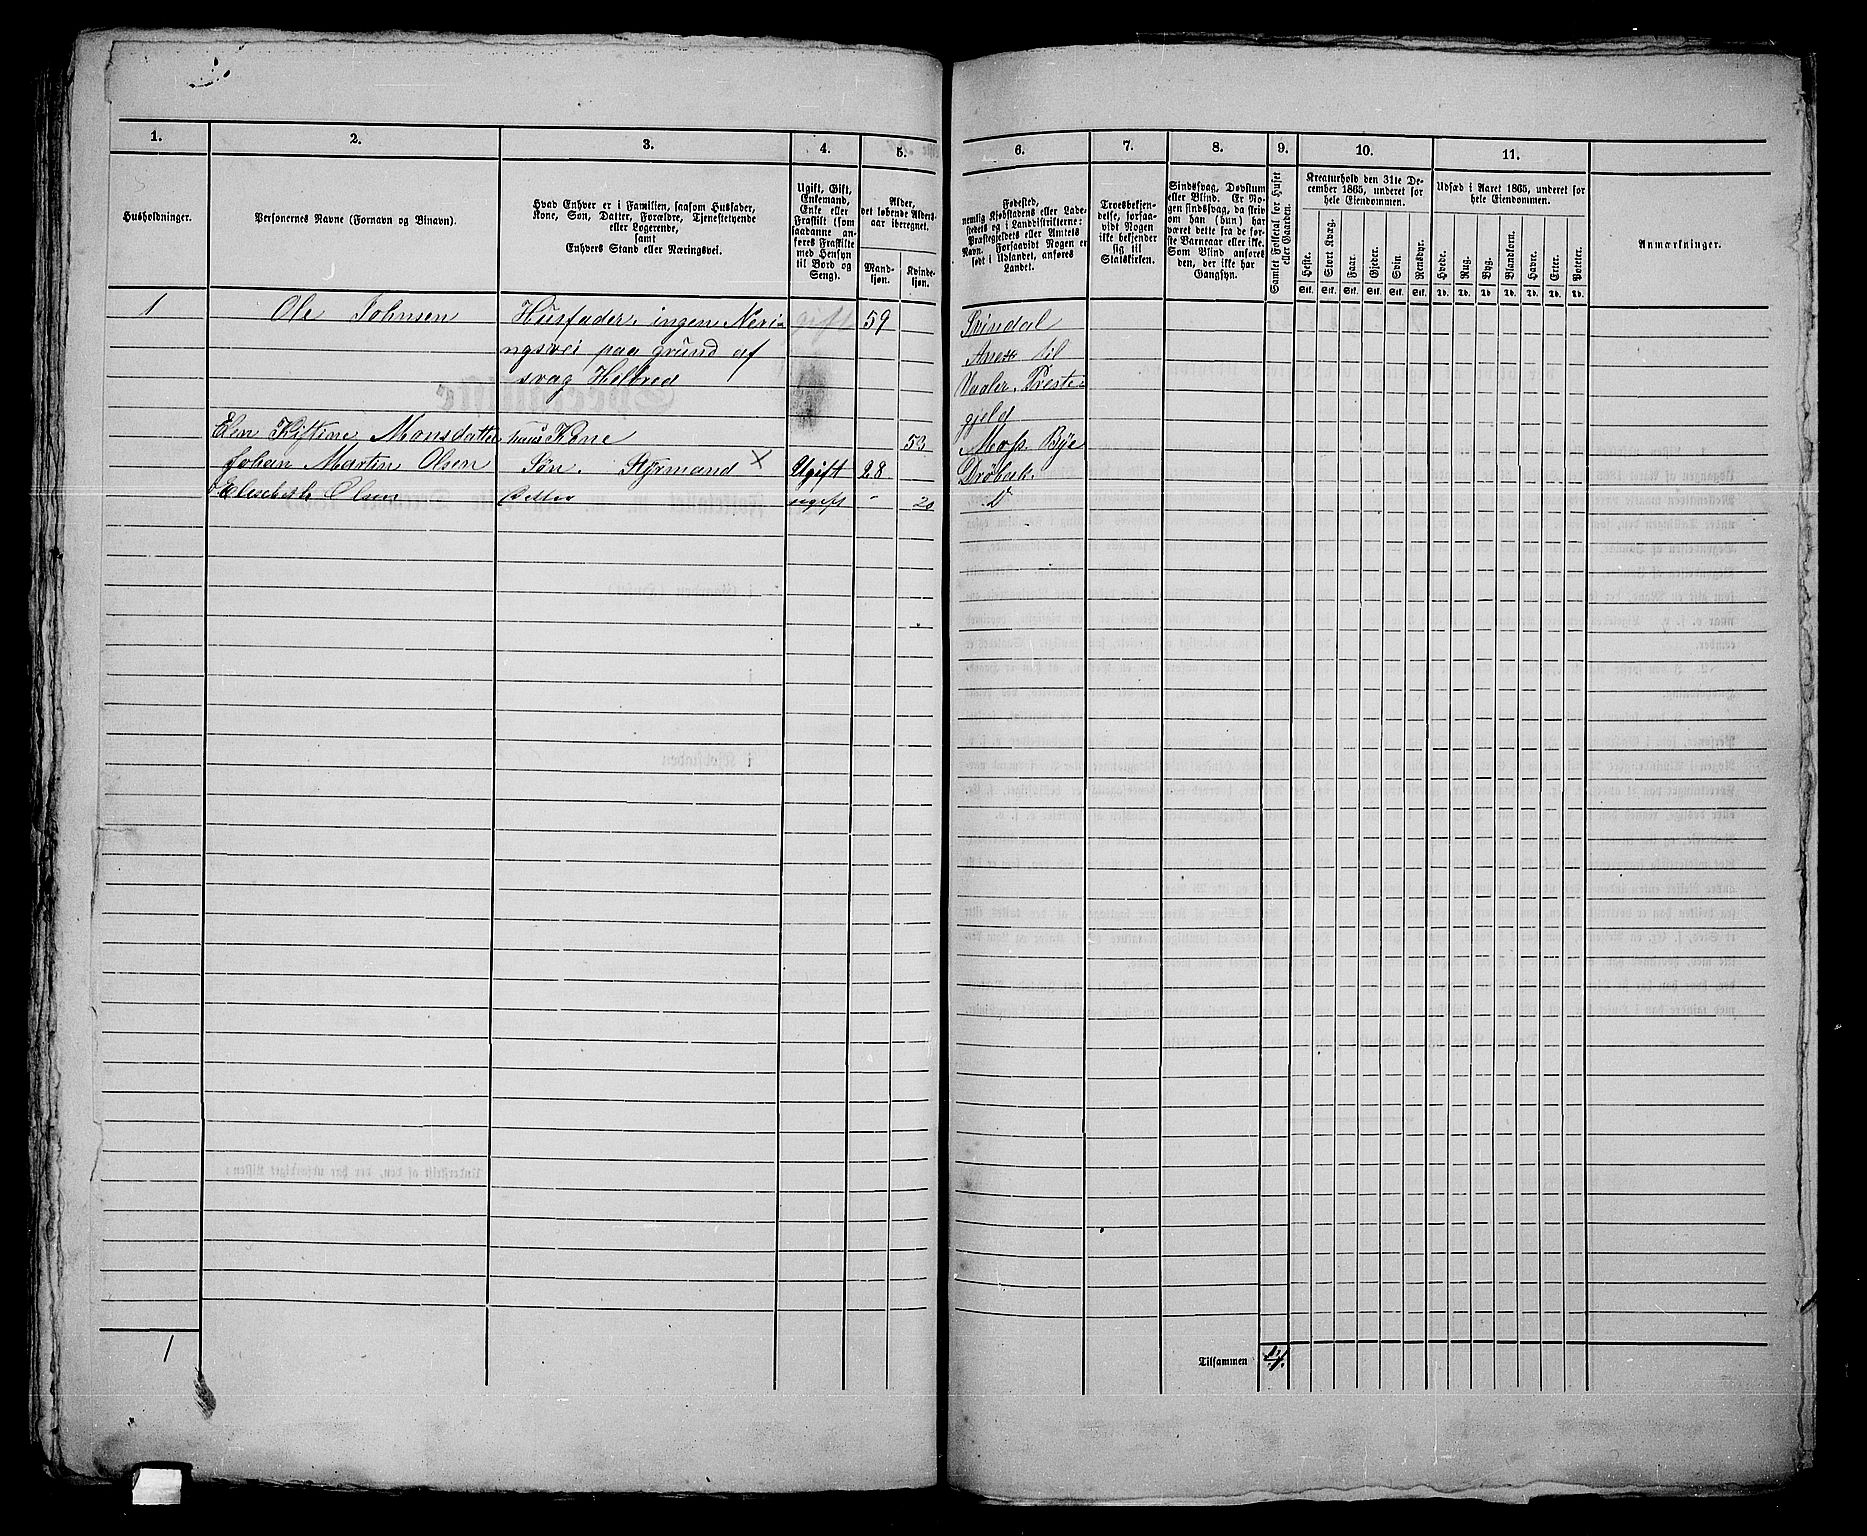 1. 2. 3. 4. 5. 6. 7. 8. 9. 10. 11.
Husholdninger.
Personernes Navne (Fornavn og Binavn).
Hvad Enhver er i Familien, saasom Husfader,
Kone, Søn, Datter, Forældre, Tjenestetyende
eller Logerende,
samt
Enhvers Stand eller Næringsvei.
Ugift, Gift,
Enkemand,
Enke eller
Fraskilt (som
saadanne an-
føres Fraskilte
med Hensyn
til Bord og
Seng).
Alder,
det løbende Alders-
aar iberegnet.
Mand-
kjøn.
Kvinde-
kjøn.
Fødested,
nemlig Kjøbstadens eller Lade-
stedets og i Landdistrikterne:
Præstegjeldets eller Amtets
Navn. Forsaavidt Nogen er
født i Udlandet, anføres
Landet.
Troesbekjen-
delse, forsaa-
vidt Nogen
ikke bekjender
sig til
Statskirken.
Sindssvag, Døvstum
eller Blind. Er No-
gen sindssvag, da skriv
om han (hun) har
været dette fra de før-
ste Barneaar eller ikke.
Som Blind anføres
den, der ikke har
Gangsyn.
Samlet Folketal for Huset
eller Gaarden.
Kreaturhold den 31te De-
cember 1865, underet for
hele Eiendommen.
Heste. Stort Kvæg. Faar. Gjeder. Svin. Rensdyr.
Stk. Stk. Stk. Stk. Stk. Stk.
Udsæd i Aaret 1865, underet for
hele Eiendommen.
Hvede. Rug. Byg. Blandkorn. Havre. Erter. Poteter.
Td. Td. Td. Td. Td. Td. Td.
Anmærkninger.
1 Ole Johnsen Husfader. ingen Neri- gift 59 Svindal
ngsvei paa grund af Anex til
svag Helbred Vaaler Preste-
gjeld
Elen Kistine Monsdatter hans Kone 53 Moss Bye
Johan Martin Olsen Søn. Styrmand X Ugift 28 Drøbak.
Elisebeth Olsen Datter ugift " 20 Do
1
Tilsammen 4.